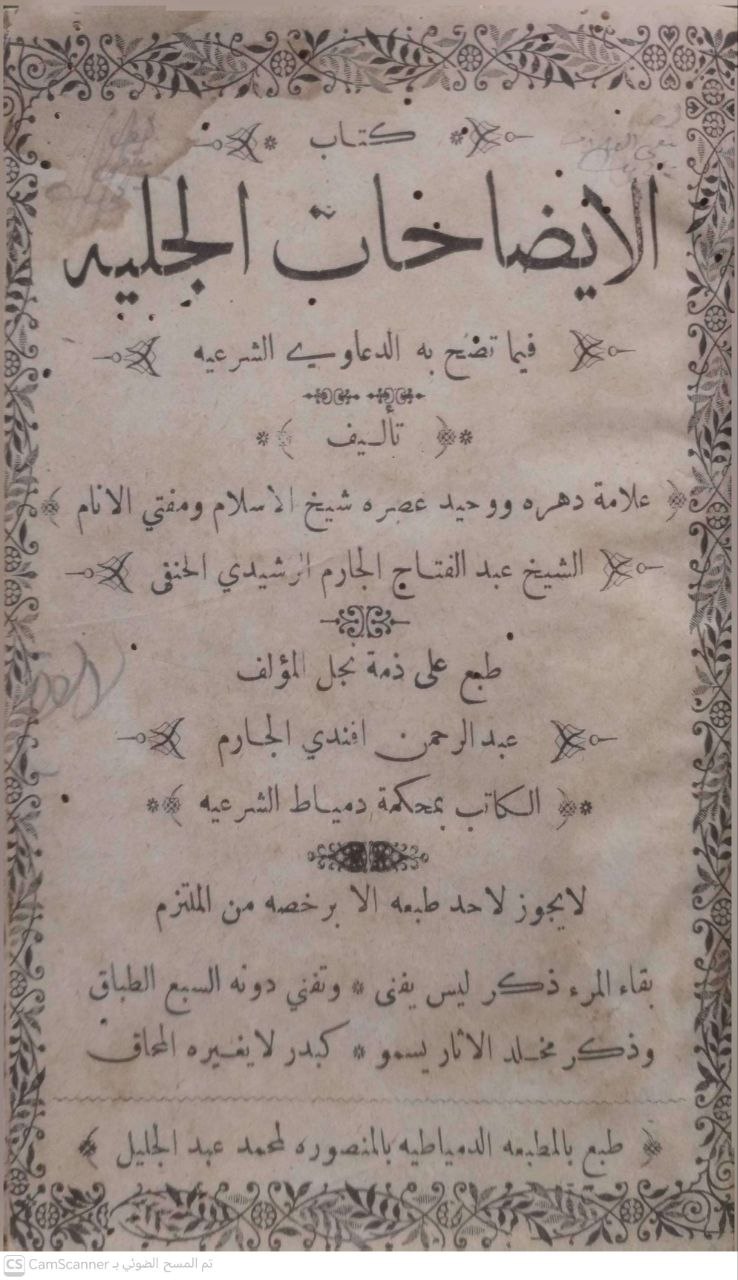 كتاب
الايضاحات الجليه
فيما تضح به الدعاوي الشرعيه
تأليف
علامة دهره ووحيد عصره شيخ الاسلام ومفتي الانام
الشيخ عبد الفتاح الجارم الرشيدي الحنفى
طبع على ذمة نجل المؤلف
عبد الرحمن افندي الجارم
الكاتب بمحكمة دمياط الشرعيه
لايجوز لاحد طبعه الا برخصه من الملتزم
بقاء المرء ذكر ليس يفنى * وتفني دونه السبع الطباق
وذكر مخلد الاثار يسمو * كبدر لايغيره المحاق
طبع بالمطبعه الدمياطيه بالمنصوره لمحمد عبد الجليل
CS CamScanner تم المسح الضوئي بـ